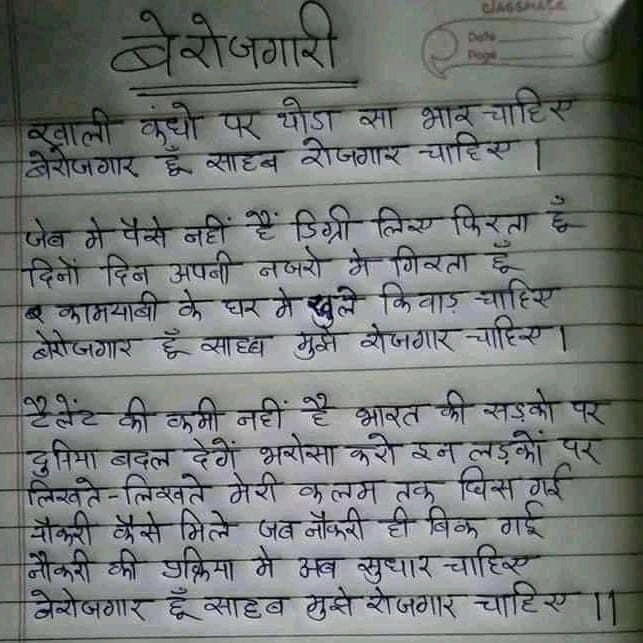 classmate
Date
Page
बेरोजगारी
खाली कंधो पर थोडा सा भार चाहिए
बेरोजगार हूँ साहब रोजगार चाहिए |
जेब मे पैसे नहीं हैं डिग्री लिए फिरता हूँ
दिनों दिन अपनी नजरो मे गिरता हूँ
कामयाबी के घर मे खुले किवाड़ चाहिए
बेरोजगार हूँ साहब मुझे रोजगार चाहिए |
टैलेंट की कमी नहीं है भारत की सड़को पर
दुनिया बदल देगें भरोसा करो इन लड़कों पर
लिखते-लिखते मेरी कलम तक घिस गई
नौकरी कैसे मिले जब नौकरी ही बिक गई
नौकरी की प्रक्रिया मे अब सुधार चाहिए
बेरोजगार हूँ साहब मुझे रोजगार चाहिए ||